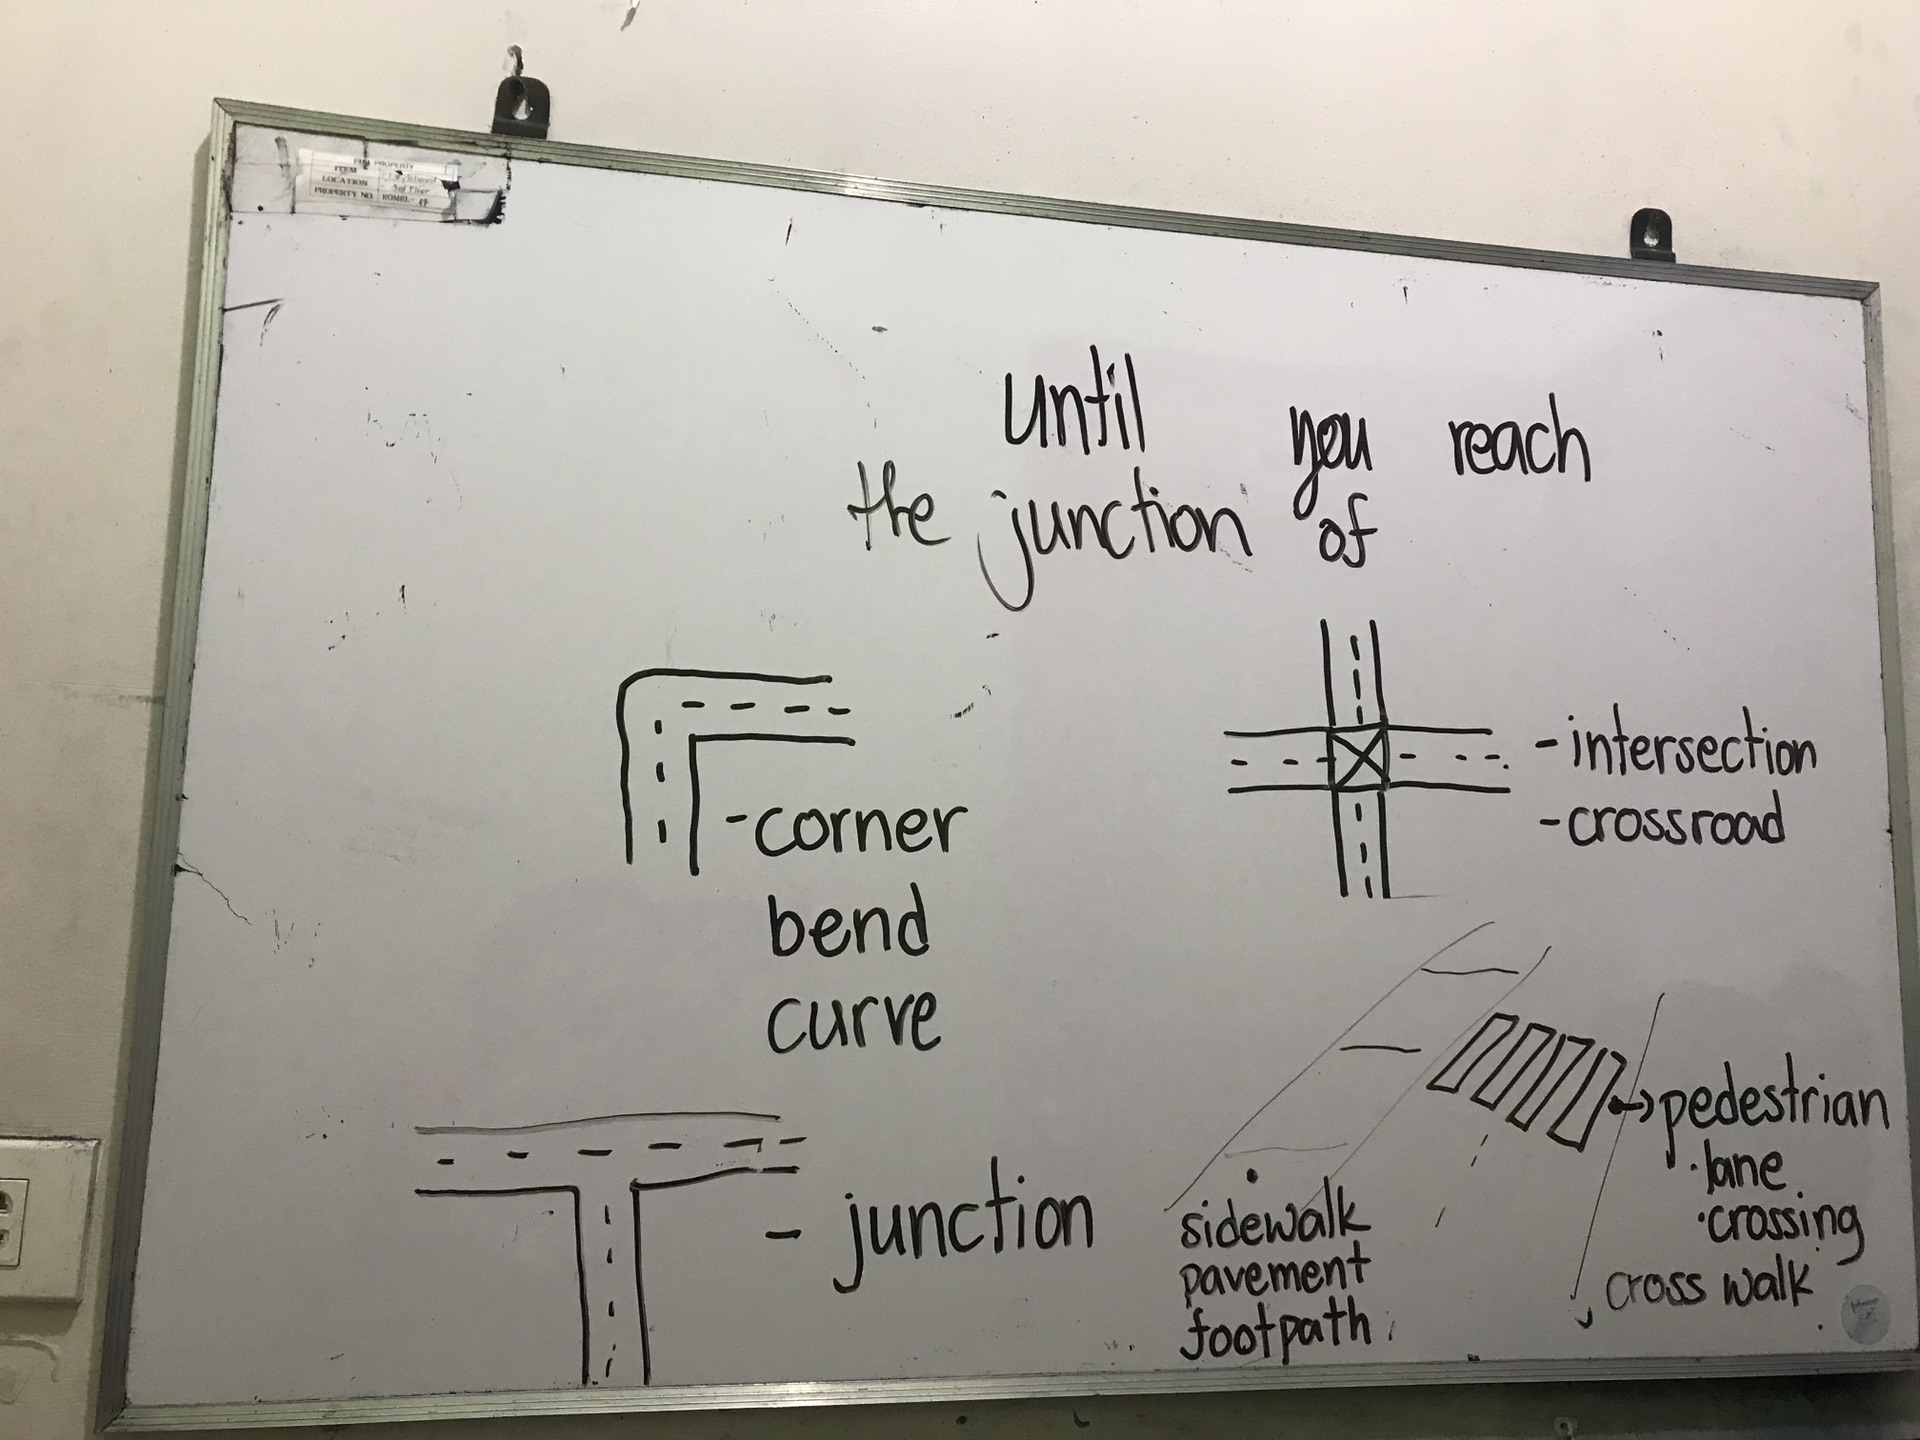 PROPERTY
ITEM
LOCATION 3rd Floor
PROPERTY NO. ROMEL-17
until you reach
the junction of
-corner
bend
curve
-intersection
-crossroad
- junction
sidewalk
pavement
footpath
pedestrian
·lane
·crossing
cross walk